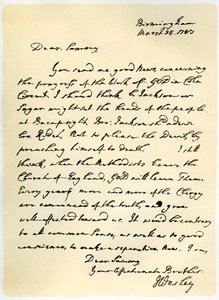 Birmingham
March 25, 1787
Dear Sammy
You send me good News, concerning
the progress of the Work of God in
I should think
Sugar might at the Heads of the people
at Bacup
But to please the Devil by
preaching himself to death I still
think, when the Methodists leave the
Church of England, God will leave Them.
Every year more and more of the Clergy
are convinced of the truth, and grow
well-affected toward us. It would be contrary
to all common Sense, as well as to good
conscience, to make a separation now. I am,
Dear Sammy
Your affectionate Brother
J Wesley